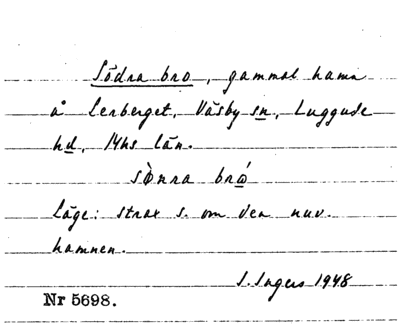 Södra bro, gammal hamn
å Lerberget, Väsby sn, Luggude
hd, Mhs län.
sònna bró
Läge: strax s. om den nuv.
hamnen.
S. Ingers 1948
Nr 5698.